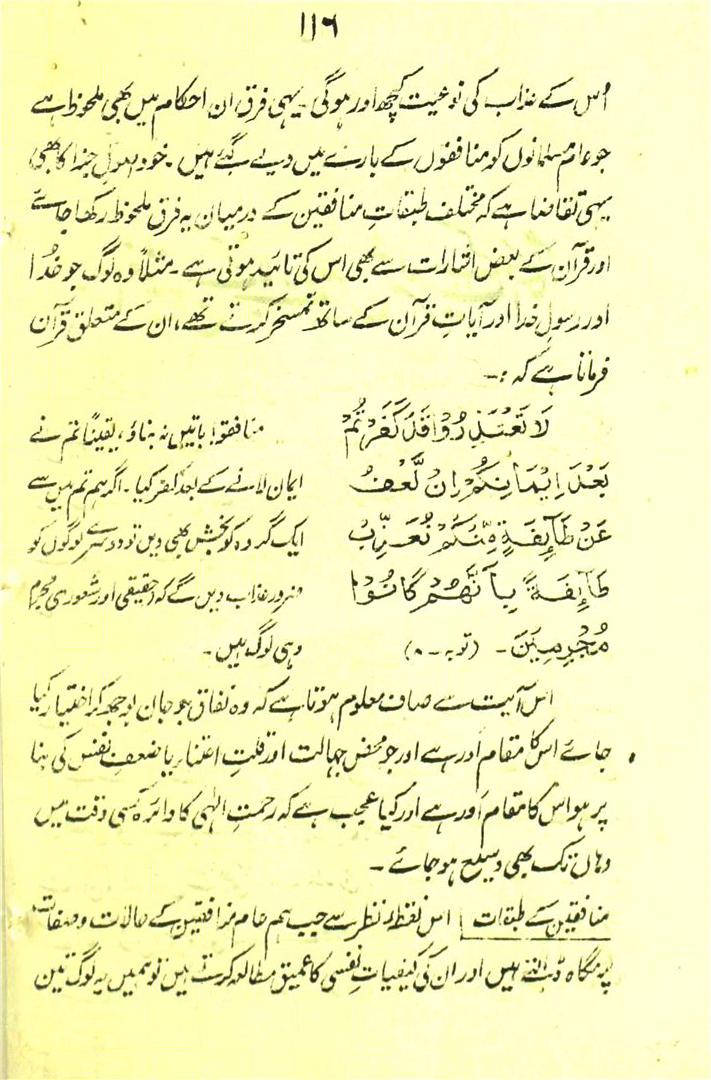 ۱۱۶
اُس کے عذاب کی نوعیت کچھ اور ہوگی۔ یہی فرق ان احکام میں بھی ملحوظ ہے
جو عام مسلمانوں کو منافقوں کے بارے میں دیے گئے ہیں۔ خود اصولِ جزا کا بھی
یہی تقاضا ہے کہ مختلف طبقاتِ منافقین کے درمیان یہ فرق ملحوظ رکھا جائے
اور قرآن کے بعض اشارات سے بھی اس کی تائید ہوتی ہے۔ مثلاً وہ لوگ جو خدُا
اور رسولِ خدا اور آیاتِ قرآن کے ساتھ تمسخر کرتے تھے، ان کے متعلق قرآن
فرماتا ہے کہ :۔
لَا تَعْتَذِرُوْا قَدْ كَفَرْتُمْ
بَعْدَ اِيْمَانِكُمْ اِنْ نَّعْفُ
عَنْ طَآئِفَةٍ مِّنْكُمْ نُعَذِّبْ
طَآئِفَةً بِاَنَّهُمْ كَانُوْا
مُجْرِمِيْنَ۔ (توبہ۔ ۸)
منافقو! باتیں نہ بناؤ، یقیناً تم نے
ایمان لانے کے بعد کفر کیا۔ اگر ہم تم میں سے
ایک گروہ کو بخش بھی دیں تو دوسرے لوگوں کو
ضرور عذاب دیں گے کہ (حقیقی اور شعوری) مجرم
وہی لوگ ہیں۔
اس آیت سے صاف معلوم ہوتا ہے کہ وہ نفاق جو جان بوجھ کر اختیار کیا
جائے اس کا مقام اَور ہے اور جو محض جہالت اور قلتِ اعتناء یا ضعفِ نفس کی بنا
پر ہو اس کا مقام اَور ہے اور کیا عجب ہے کہ رحمتِ الٰہی کا دائرہ کسی وقت میں
وہاں تک بھی وسیع ہو جائے۔
منافقین کے طبقات | اس نقطۂ نظر سے جب ہم عام منافقین کے حالات و صفات
پر نگاہ ڈالتے ہیں اور ان کی کیفیاتِ نفسی کا عمیق مطالعہ کرتے ہیں تو ہمیں یہ لوگ تین